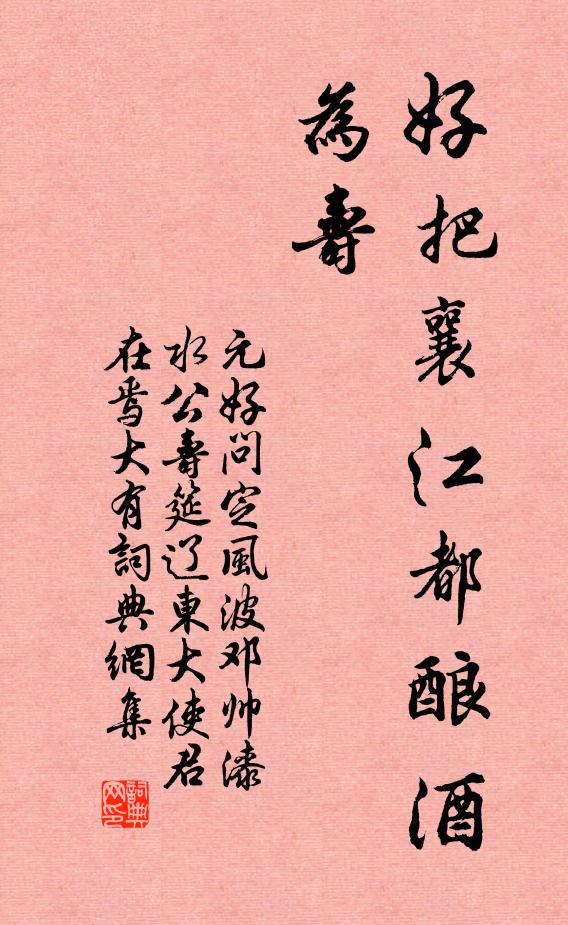 好把襄江都酿酒
為壽
元好問定風波邓帅漆
水公壽筵辽東大使君
在焉大有詞典網集
詞典
网印